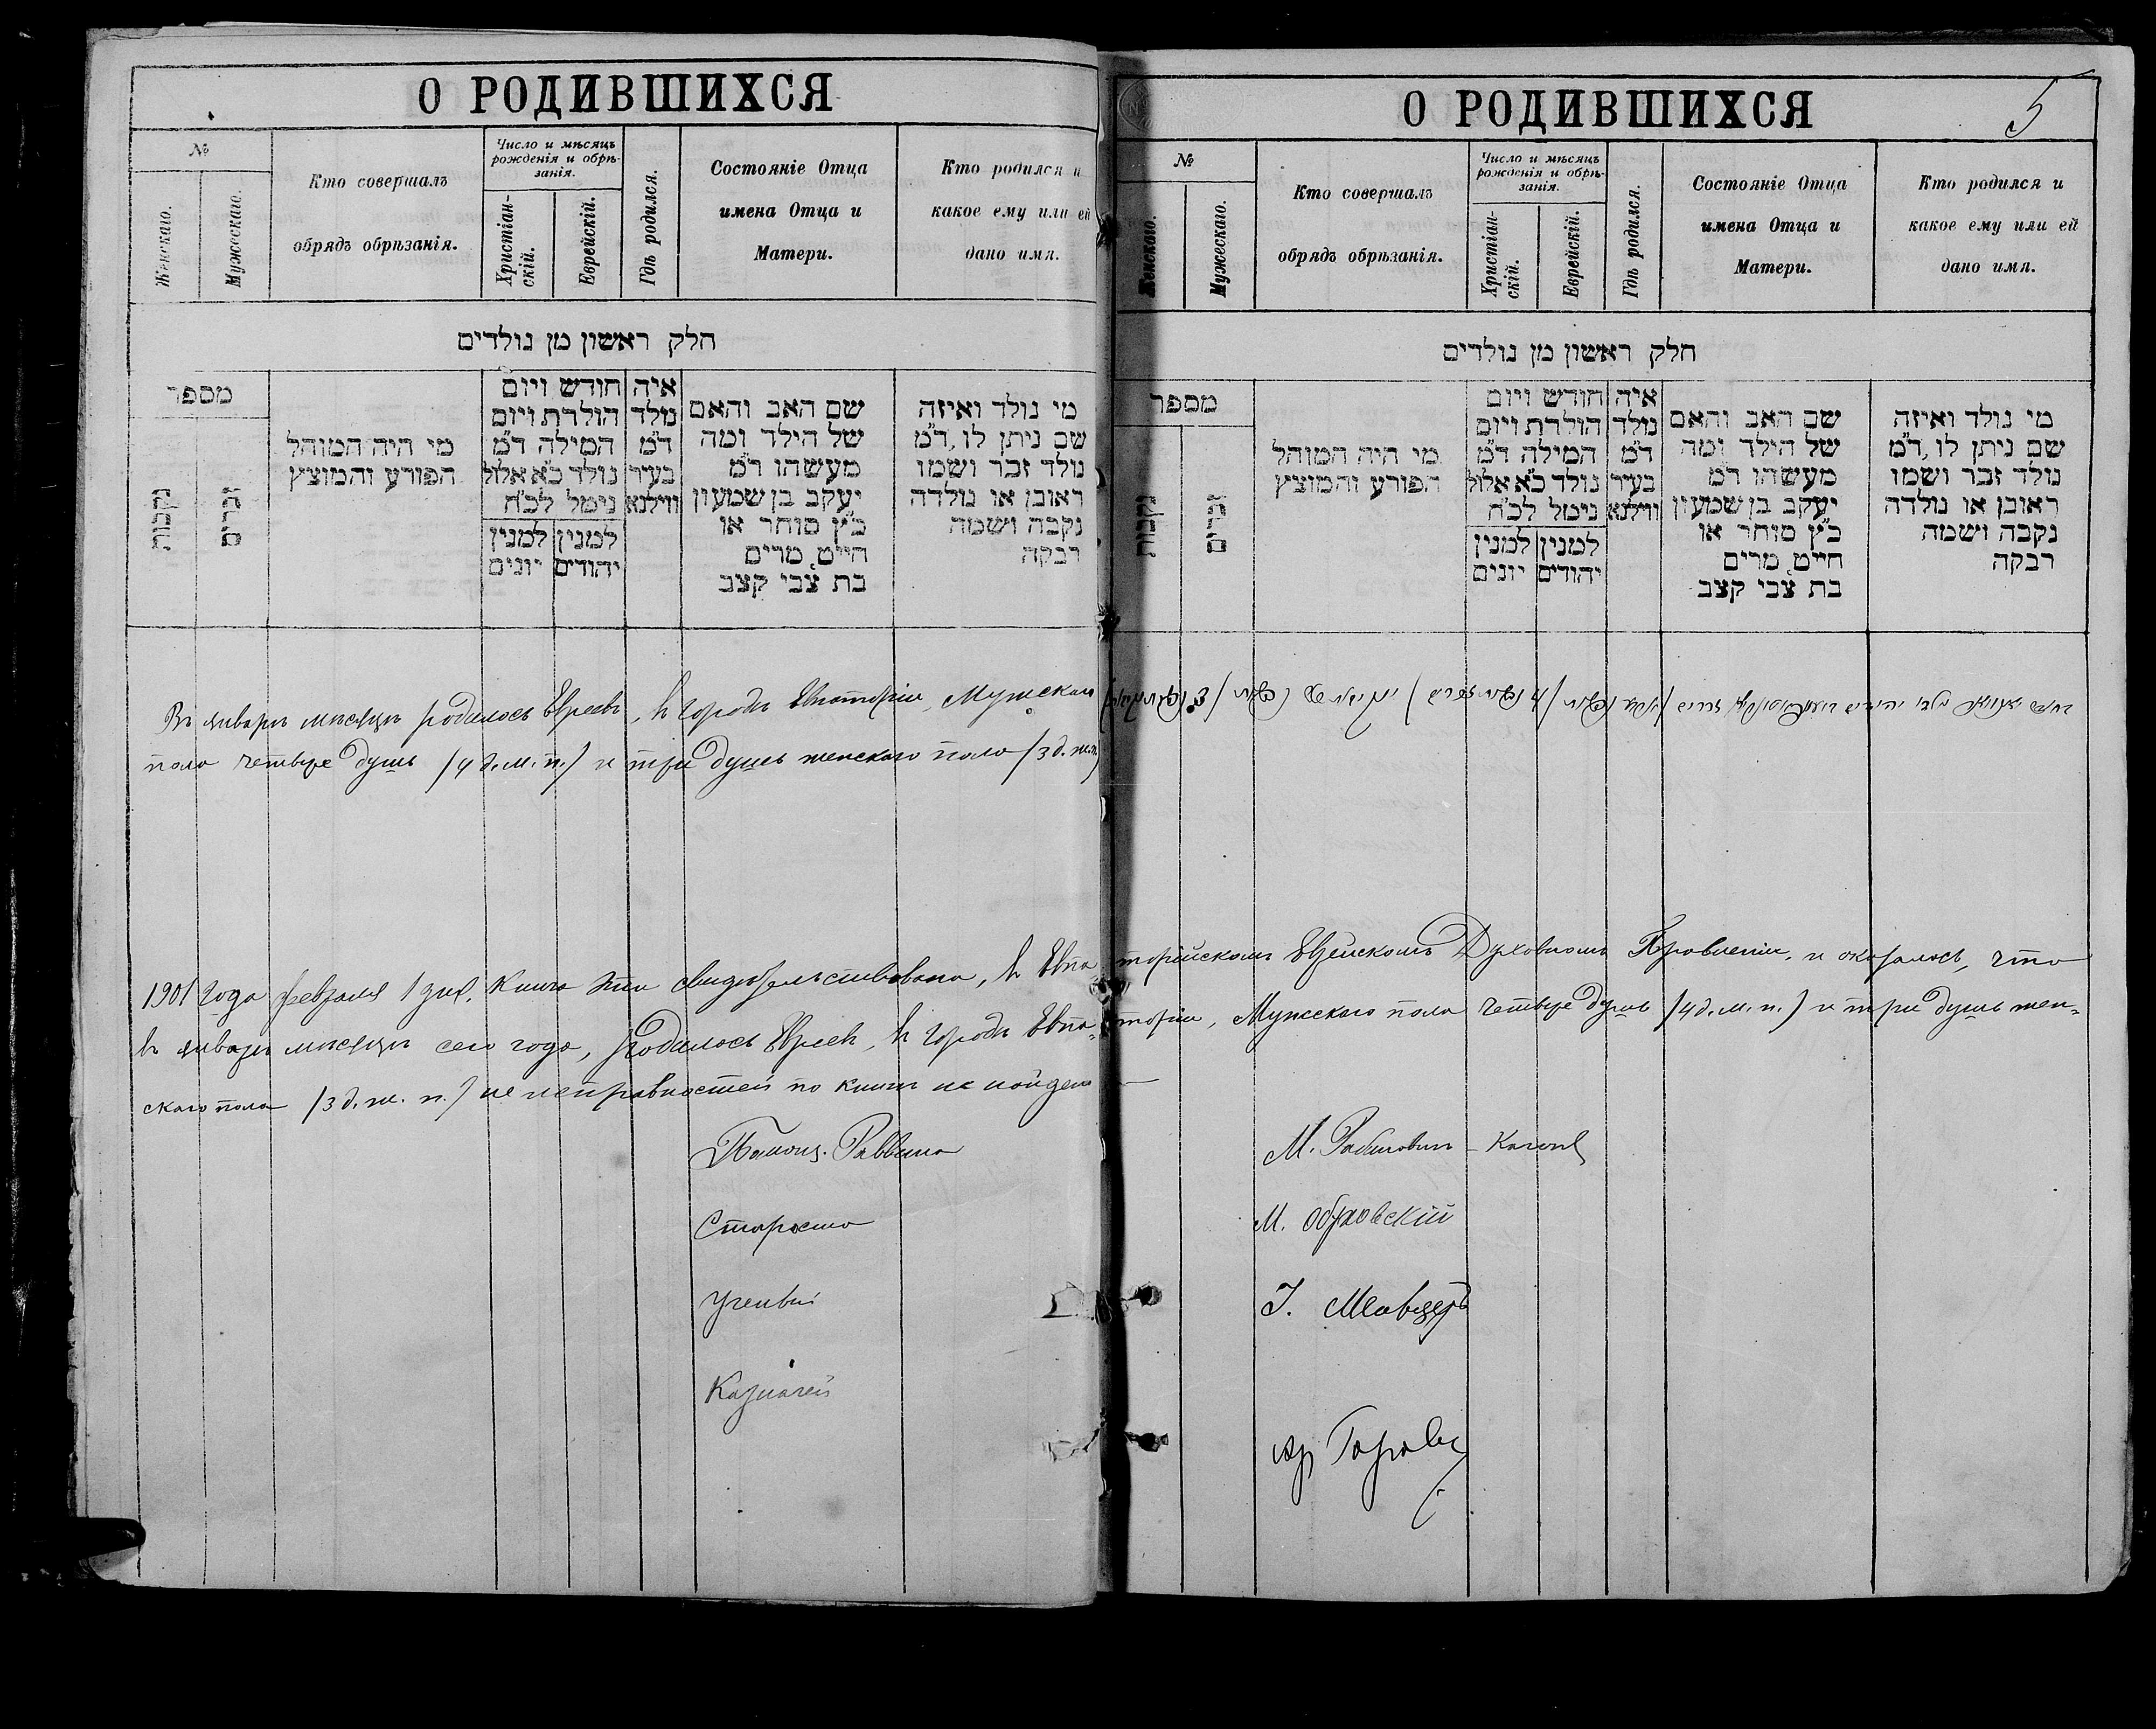 О РОДИВШИХСЯ
№
Женскаго.
Мужескаго.
Кто совершалъ
обрядъ обрѣзанія.
Число и мѣсяцъ
рожденія и обрѣ-
занія.
Христіан-
скій.
Еврейскій.
Гдѣ родился.
Состояніе Отца
имена Отца и
Матери.
Кто родился и
какое ему или ей
дано имя.
חלק ראשון מן נולדים
מספר
נקבות
זכרים
מי היה המוהל
הפורע והמוצץ
חודש ויום
הולדת ויום
המילה ד״מ
נולד כ״א אלול
נימל לכ״ח
למנין יונים
למנין יהודים
איה
נולד
ד״מ
בעיר
ווילנא
שם האב והאם
של הילד ומה
מעשהו ד״מ
יעקב בן שמעון
כ״ץ סוחר או
חייט, מרים
בת צבי קצב
מי נולד ואיזה
שם ניתן לו, ד״מ
נולד זכר ושמו
ראובן או נולדה
נקבה ושמה
רבקה
Въ январѣ мѣсяцѣ родилось Евреевъ, въ городѣ Евпаторіи, Мужскаго
пола четыре душъ /4 д. м. п./ и три душъ женскаго пола /3 д. ж. п./
О РОДИВШИХСЯ
5
№
Женскаго.
Мужескаго.
Кто совершалъ
обрядъ обрѣзанія.
Число и мѣсяцъ
рожденія и обрѣ-
занія.
Христіан-
скій.
Еврейскій.
Гдѣ родился.
Состояніе Отца
имена Отца и
Матери.
Кто родился и
какое ему или ей
дано имя.
חלק ראשון מן נולדים
מספר
נקבות
זכרים
מי היה המוהל
הפורע והמוצץ
חודש ויום
הולדת ויום
המילה ד״מ
נולד כ״א אלול
נימל לכ״ח
למנין יונים
למנין יהודים
איה
נולד
ד״מ
בעיר
ווילנא
שם האב והאם
של הילד ומה
מעשהו ד״מ
יעקב בן שמעון
כ״ץ סוחר או
חייט, מרים
בת צבי קצב
מי נולד ואיזה
שם ניתן לו, ד״מ
נולד זכר ושמו
ראובן או נולדה
נקבה ושמה
רבקה
1901 года февраля 1 дня. Книга эта свидѣтельствована, въ Евпаторійскомъ Еврейскомъ Духовномъ Правленіи, и оказалось, что
въ январѣ мѣсяцѣ сего года, родилось Евреевъ, въ городѣ Евпа-торіи, Мужскаго пола четыре душъ /4 д. м. п./ и три душъ жен-
скаго пола /3 д. ж. п./ неисправностей по книгѣ не найдено
Помощ. Раввина М. Рабиновичъ - Каганъ
Староста М. Обуховскій
Ученый
Казначей